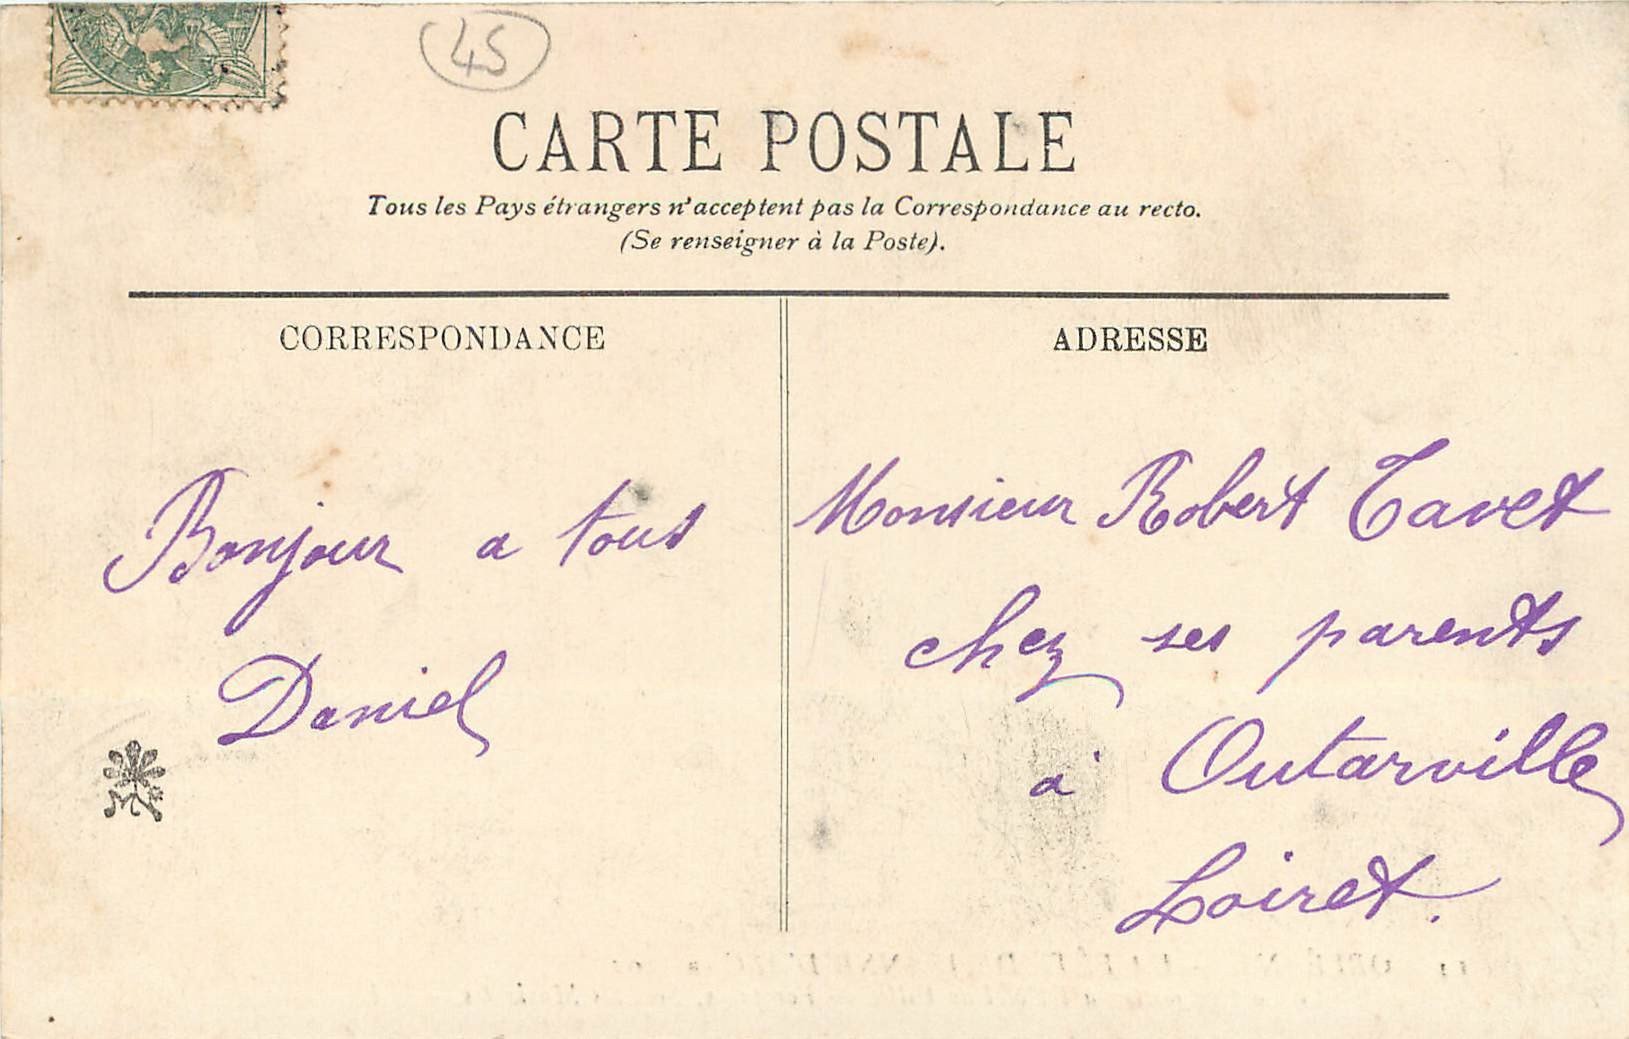 45
CARTE POSTALE
Tous les Pays étrangers n'acceptent pas la Correspondance au recto.
(Se renseigner à la Poste).
CORRESPONDANCE
ADRESSE
Bonjour a tous
Daniel
Monsieur Robert Tavet
chez ses parents
à Outarville
Loiret.